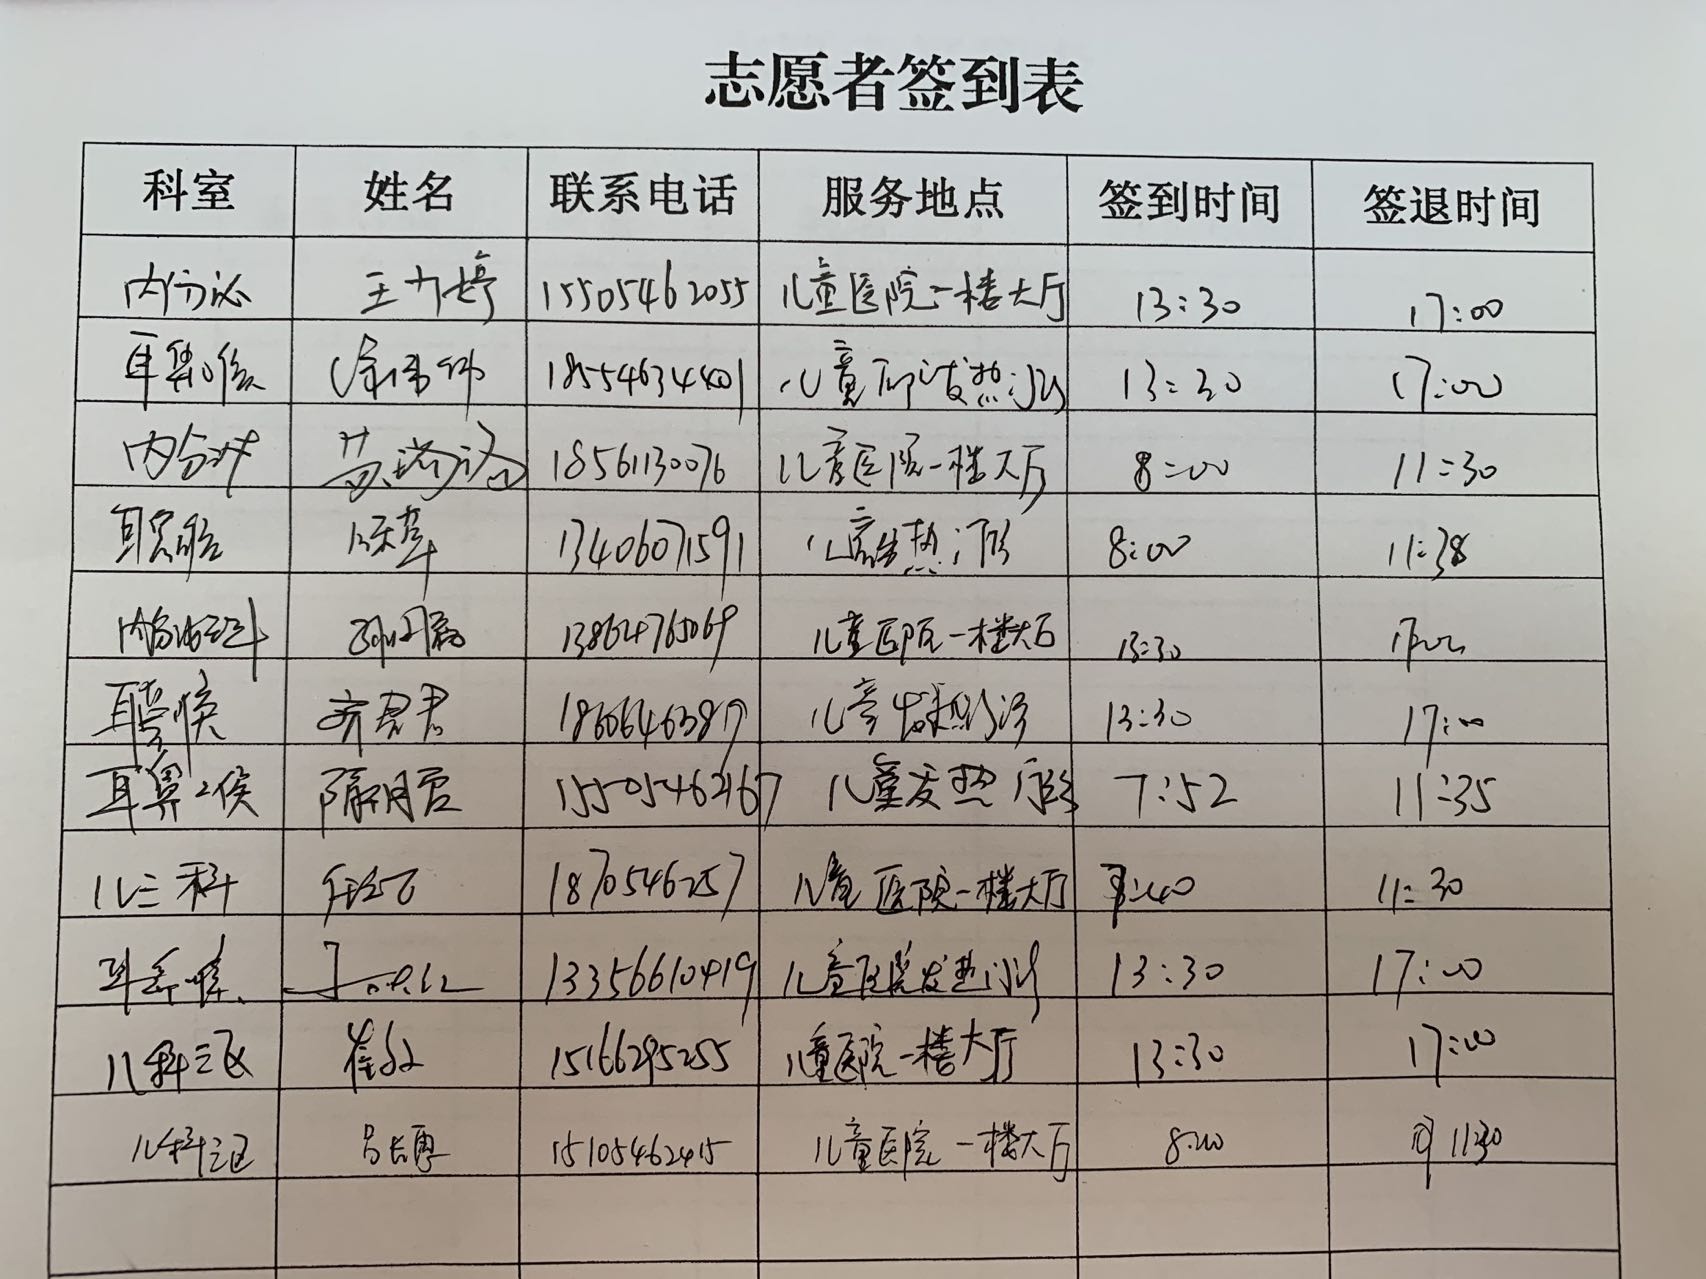 志愿者签到表
科室 姓名 联系电话 服务地点 签到时间 签退时间
内分泌 王力婷 15505462055 儿童医院一楼大厅 13:30 17:00
耳鼻喉 18554634401 儿童 发热门诊 13:30 17:00
内分泌 18561130076 儿童医院一楼大厅 8:00 11:30
耳鼻喉 13406071591 儿童发热门诊 8:00 11:38
内分泌 13864765069 儿童医院一楼大厅 13:30 17:00
耳鼻喉 齐君君 儿童发热门诊 13:30 17:00
耳鼻喉 15505462167 儿童发热门诊 7:52 11:35
儿三科 儿童医院一楼大厅 :40 11:30
耳鼻喉 13356610419 儿童医院发热门诊 13:30 17:00
儿科三区 15166295255 儿童医院一楼大厅 13:30 17:00
儿科三区 15105462415 儿童医院一楼大厅 8:00 11:30